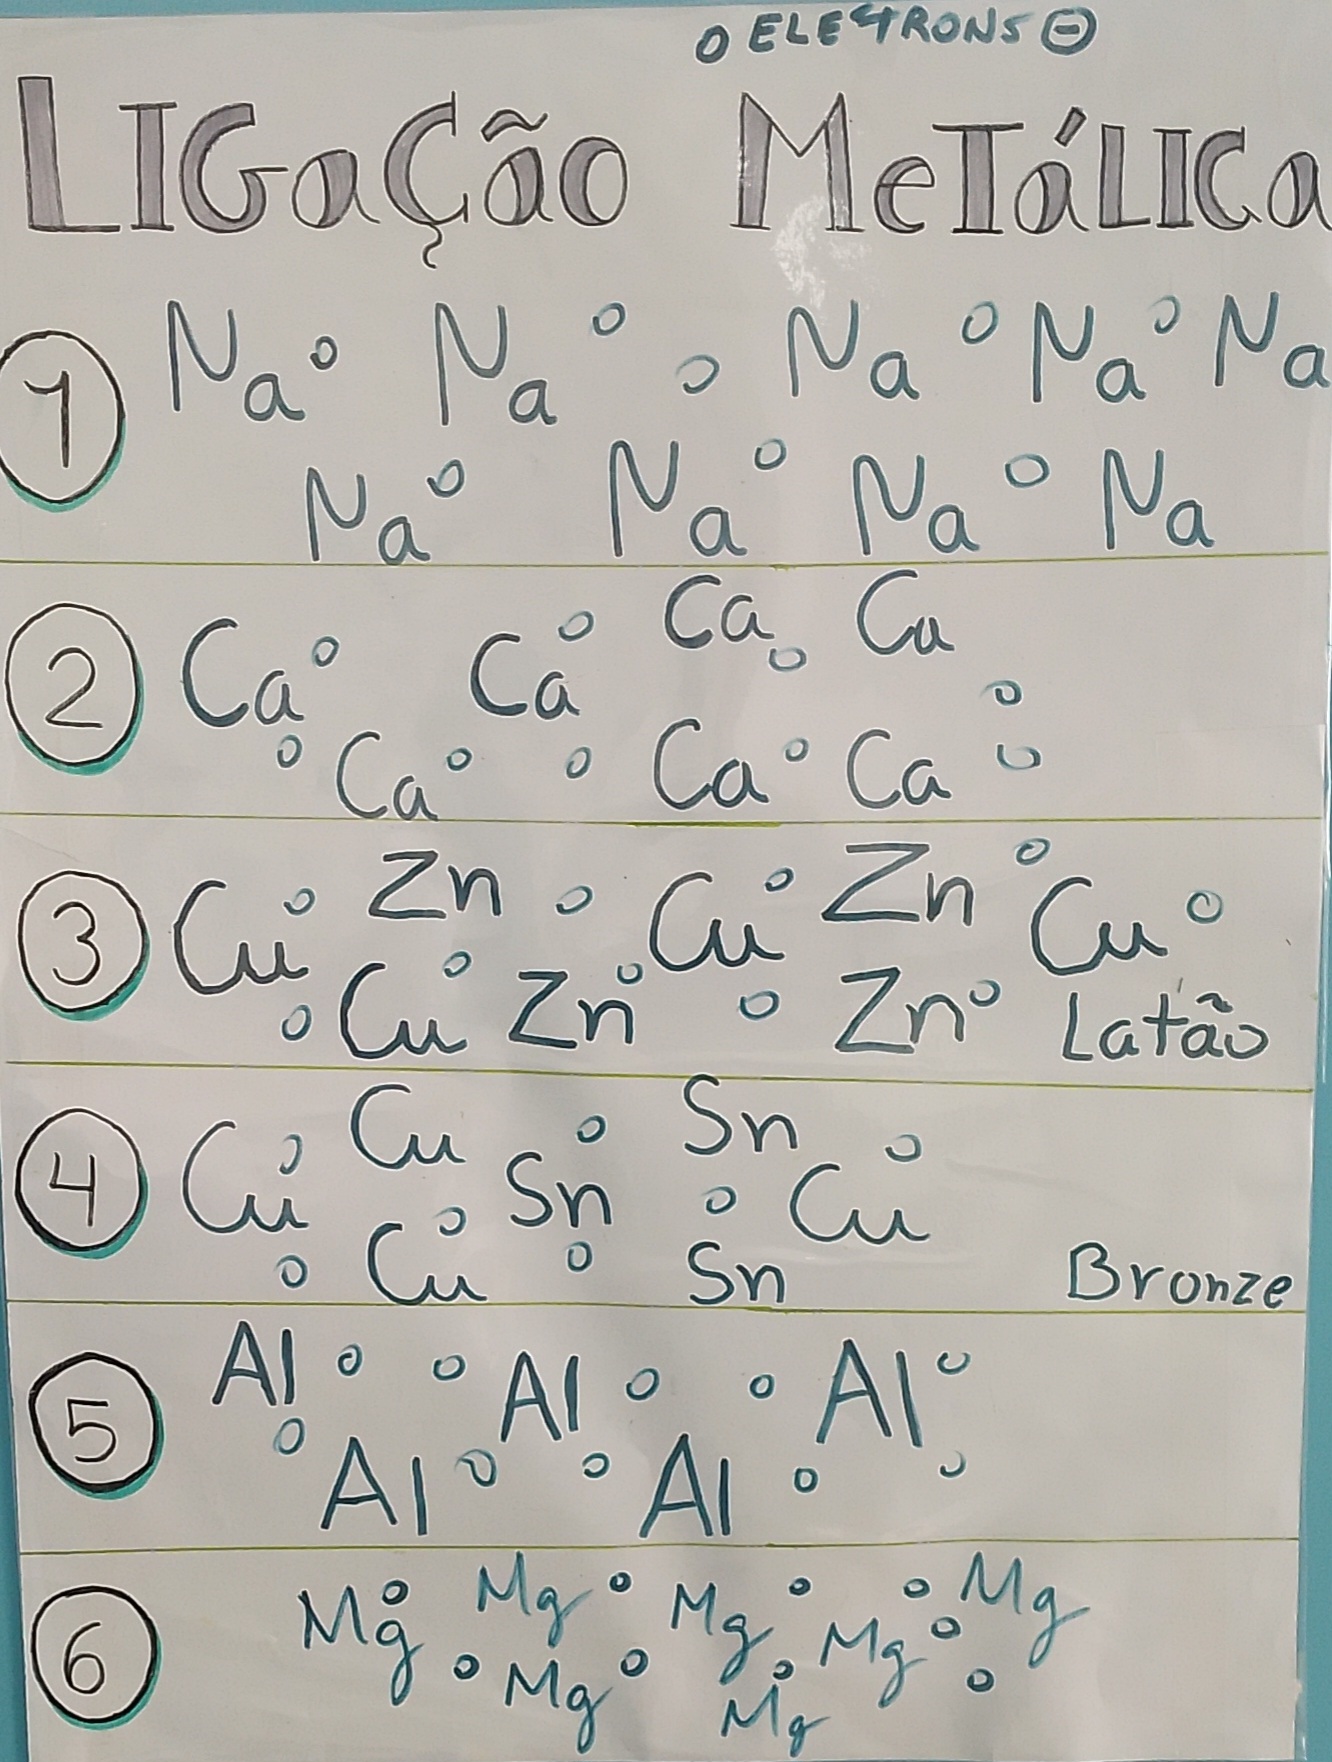 o ELETRONS ⊖
LIGAÇÃO METÁLICA
1 Na o Na o o Na o Na o Na
Na o Na o Na o Na
2 Ca o Ca o Ca o Ca o
o Ca o o Ca o Ca o
3 Cu o Zn o Cu o Zn o Cu o
o Cu o Zn o o Zn o Latão
4 Cu o Cu o Sn o
Sn o Cu
o Cu o o Sn Bronze
5 Al o o Al o o Al o
o Al o o Al o o
6 Mg o Mg o Mg o o Mg
o Mg o o Mg o o
Mg